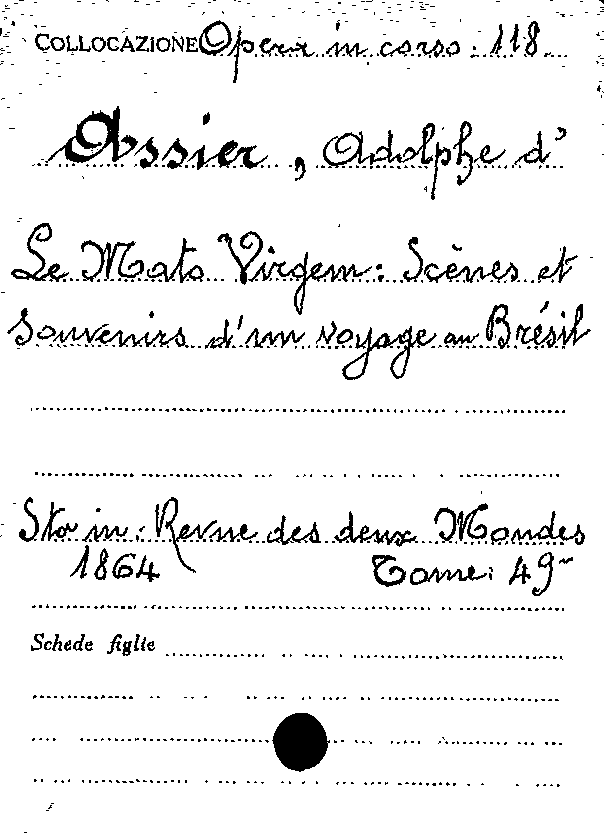 COLLOCAZIONE Opera in corso. 118
Assier, Adolphe d'
Le Mato Virgem: Scènes et
Souvenirs d'un voyage au Brésil
Sta in: Revue des deux Mondes
1864 Tome: 49~
Schede figlie